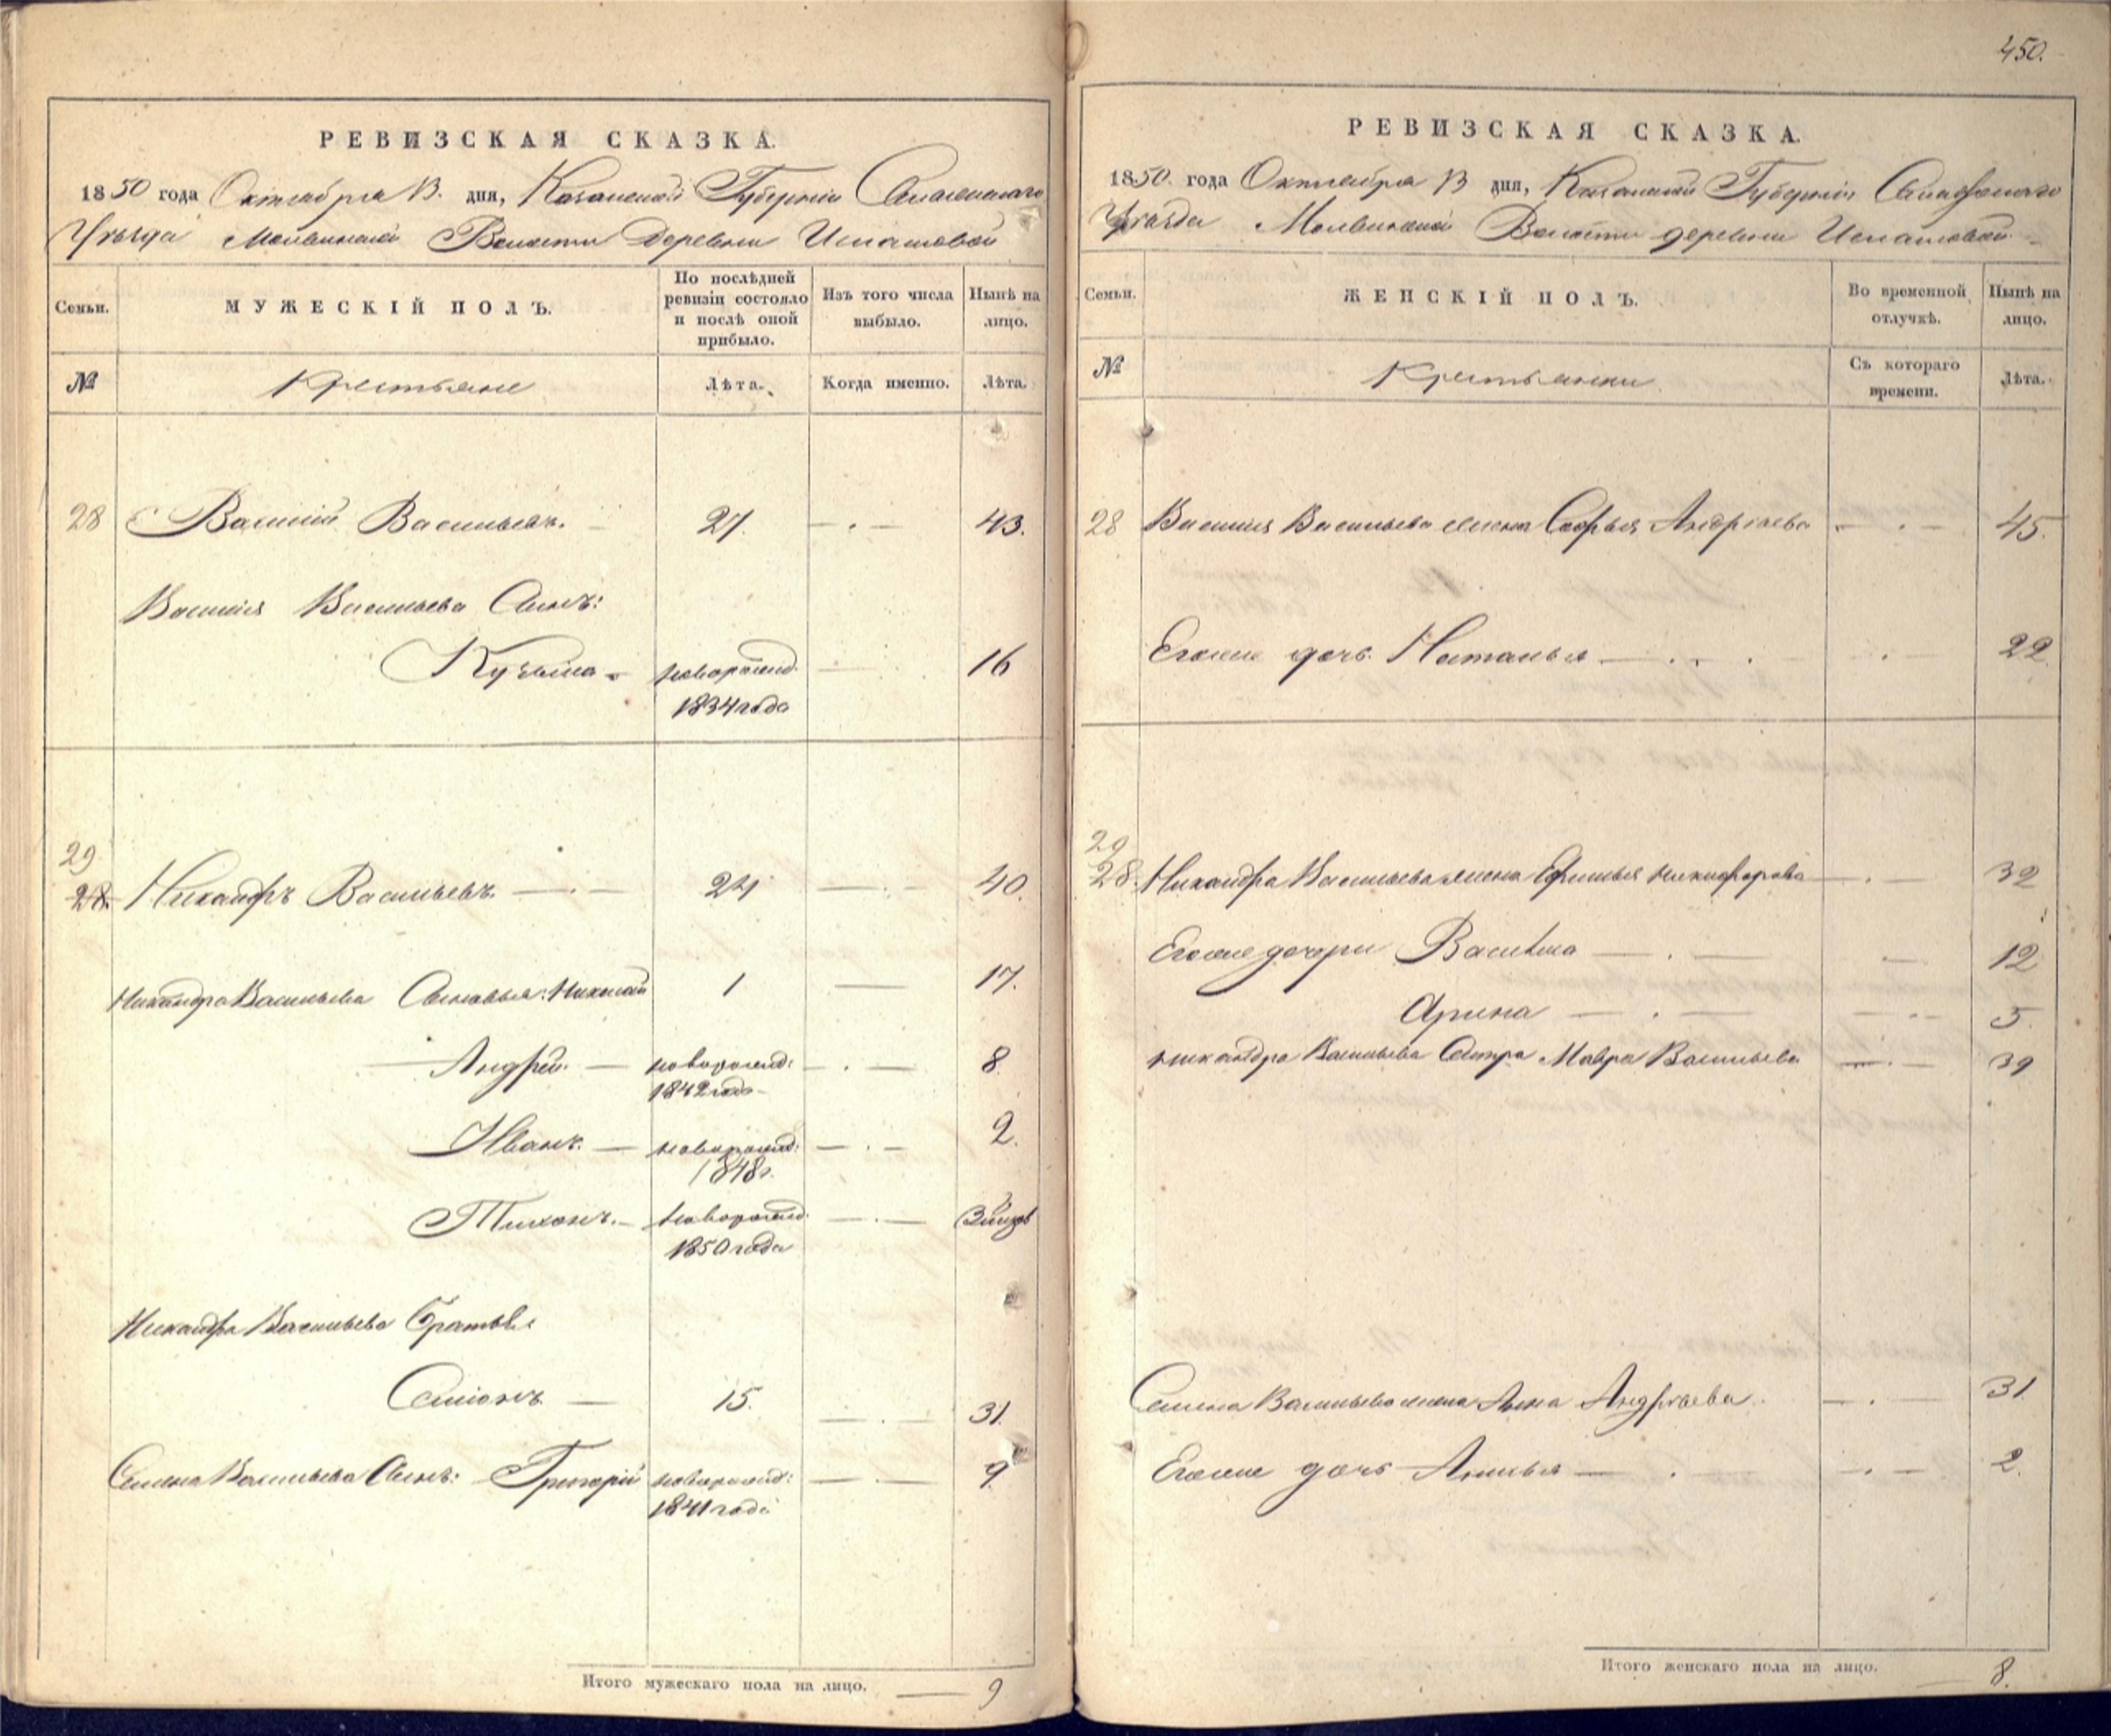 РЕВИЗСКАЯ СКАЗКА.
1850 года Октября 13. дня, Казанской Губерніи Спаскаго
Уѣзда Волости Деревни
Семьи. МУЖЕСКІЙ ПОЛЪ. По послѣдней ревизіи состояло и послѣ оной прибыло. Изъ того числа выбыло. Нынѣ на лицо.
№ Крестьяне Лѣта. Когда именно. Лѣта.
28 Василій Васильевъ. 27. 43.
Василія Васильева Сынъ:
Кузьма новорожд. 16
1834 года
29
28. Никандръ Васильевъ. 24 40.
Никандра Васильева Сыновья: Николай 1 17.
Андрей. новорожд: 8.
1842 года
Иванъ. новорожд: 2.
1848 г.
Тихонъ. новорожд.
1850 года
Никандра Васильева Братья
Семіонъ 15. 31.
Семена Васильева Сынъ: Григорій новорожд: 9.
1841 года
Итого мужескаго пола на лицо. 9
450.
РЕВИЗСКАЯ СКАЗКА.
1850. года Октября 13 дня, Казанской Губерніи
Уѣзда Волости деревни
Семьи. ЖЕНСКІЙ ПОЛЪ. Во временной отлучкѣ. Нынѣ на лицо.
№ Крестьянки Съ котораго времени. Лѣта.
28 Василія Васильева жена Софья Андреева 45.
Егоже дочь Наталья 22
29
28. Никандра Васильева жена Ефимья Никифорова 32
Егоже дочери Василиса 12
Арина 5.
Никандра Васильева Сестра Мавра Васильева 39
Семена Васильева жена Анна Андреева. 31.
Егоже дочь Анисья 2.
Итого женскаго пола на лицо. 8.